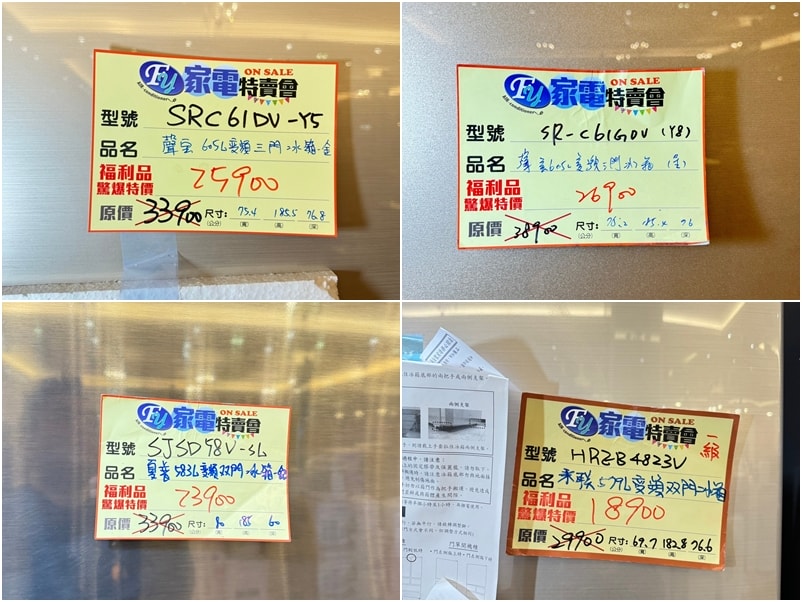 FU 家電 ON SALE 特賣會
air conditioner
型號 SRC61DV-Y5
品名 聲宝 605L変頻三門冰箱-金
福利品 驚爆特價 25900
原價 33900 尺寸: 75.4 185.5 76.8
(公分) (寬) (高) (深)
FU 家電 ON SALE 特賣會
air conditioner
型號 SR-C61GDV (Y8)
品名 605L変頻三門冰箱 (金)
福利品 驚爆特價 26900
原價 38900 尺寸: 75.2 185.4 76
(公分) (寬) (高) (深)
FU 家電 ON SALE 特賣會
型號 SJSD58V-SL
品名 夏普 583L変頻双門冰箱-銀
福利品 驚爆特價 23900
原價 33900 尺寸: 80 185 60
(公分) (寬) (高) (深)
兩側支架
門單開機種
FU 家電 ON SALE 特賣會 一級
型號 HRZB4823V
品名 禾聯 57L変頻双門冰箱
福利品 驚爆特價 18900
原價 29900 尺寸: 69.7 182.8 76.6
(公分) (寬) (高) (深)